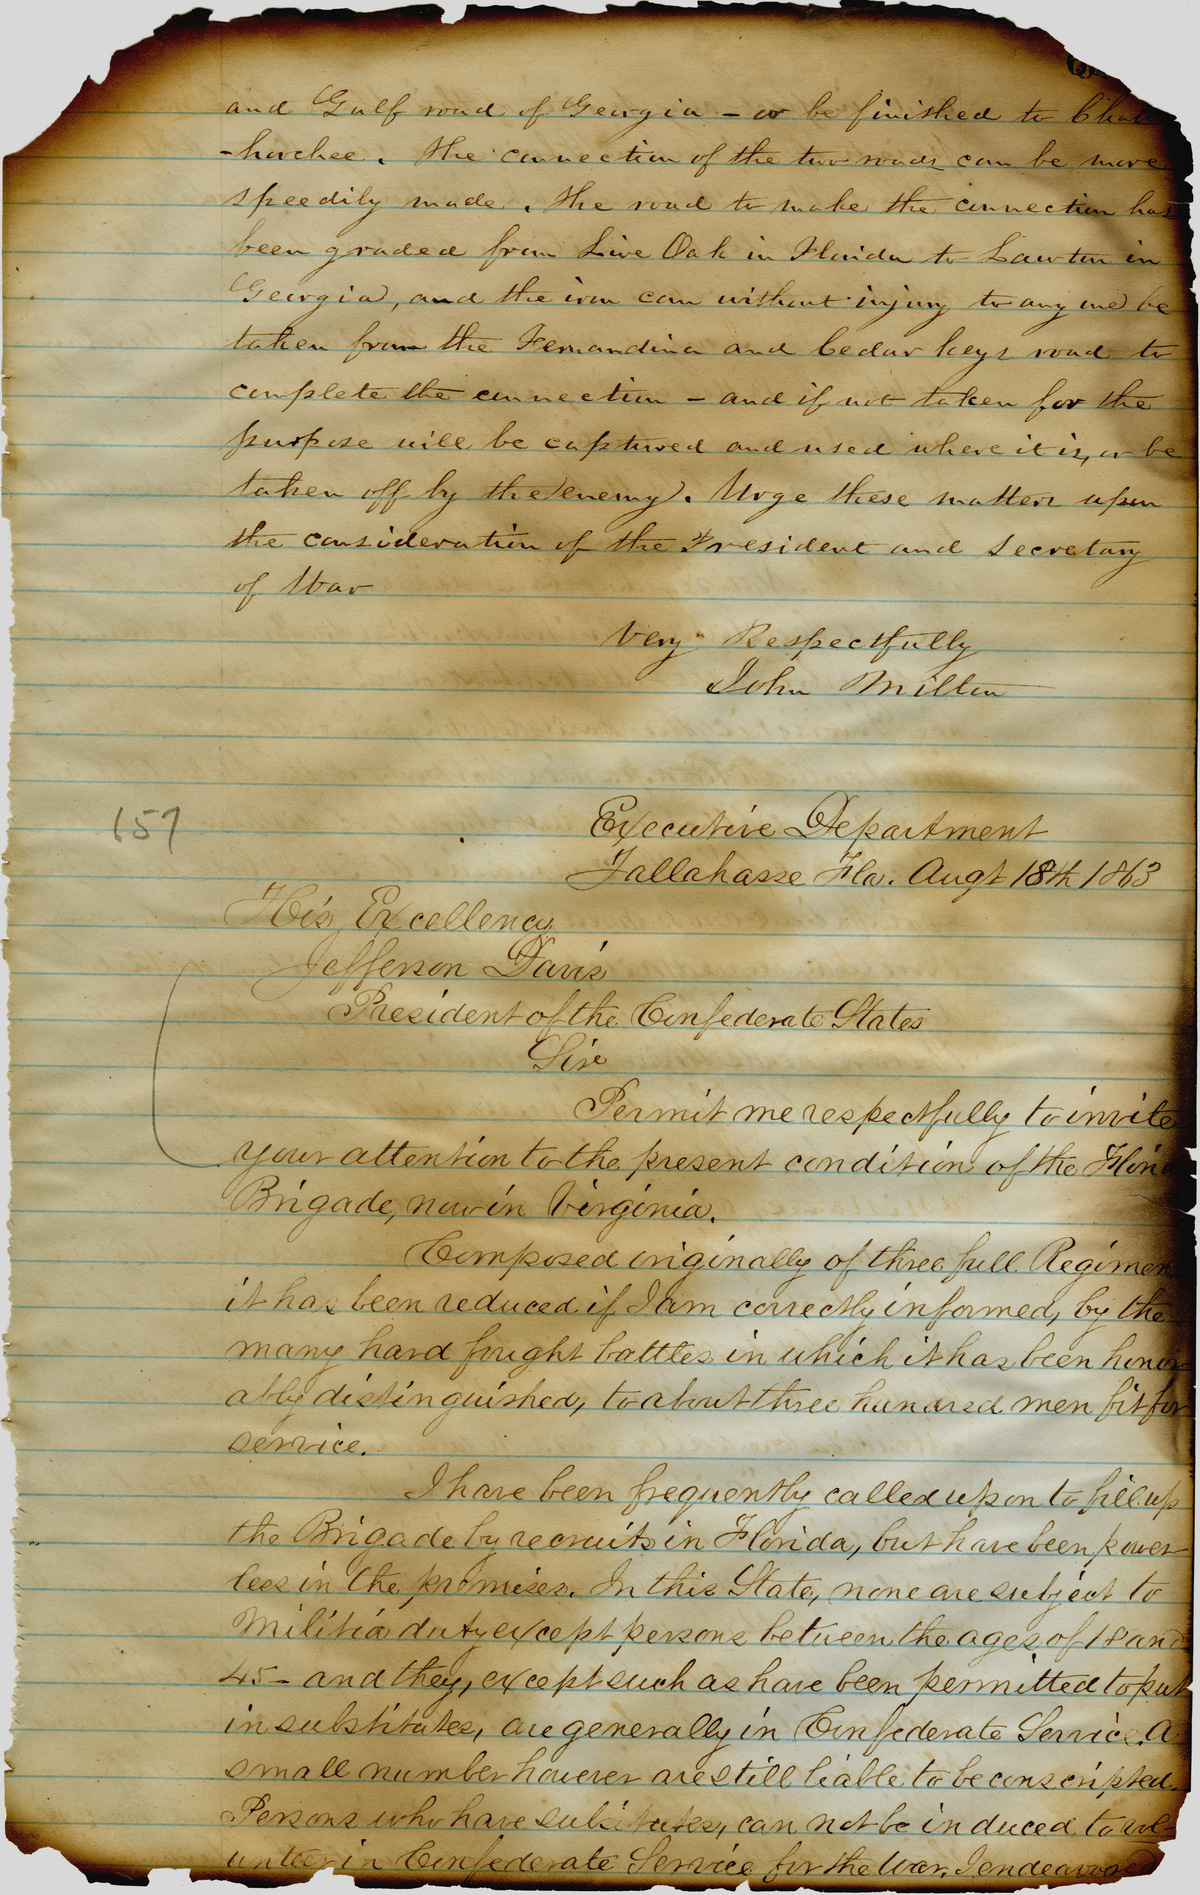 and Gulf road of Georgia - or be finished to Chat
-hoochee. The connection of the two roads can be more
speedily made. The road to make the connection has
been graded from Live Oak in Florida to Lawton in
Georgia, and the iron can without injury to any one be
taken from the Fernandina and Cedar Keys road to
complete the connection - and if not taken for the
purpose will be captured and used where it is, or be
taken off by the enemy. Urge these matters upon
the consideration of the President and Secretary
of War
Very Respectfully
John Milton
157
Executive Department
Tallahasse Fla. Augt 18th 1863
His Excellency
Jefferson Davis
President of the Confederate States
Sir
Permit me respectfully to invite
your attention to the present condition of the Flori
Brigade, now in Virginia.
Composed originally of three full Regimen
it has been reduced if I am correctly informed, by the
many hard fought battles in which it has been honor
ably distinguished, to about three hundred men fit for
service.
I have been frequently called upon to fill up
the Brigade by recruits in Florida, but have been power
less in the premises. In this State, none are subject to
Militia duty except persons between the ages of 18 and
45- and they, except such as have been permitted to put
in substitutes, are generally in Confederate Service. A
small number however are still liable to be conscripted.
Persons who have substitutes, can not be induced to vol
unteer in Confederate Service for the war. I endeavored